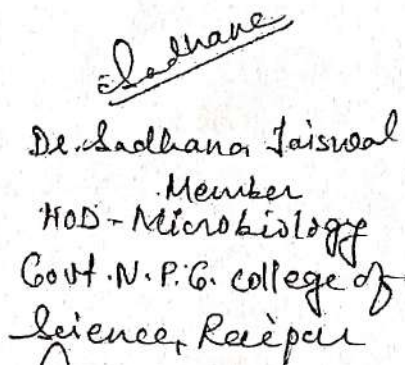 Sadhana
Dr. Sadhana Jaiswal
Member
HOD - Microbiology
Govt. N. P. G. college of
Science, Raipur